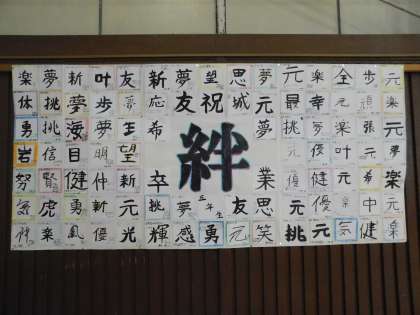 楽夢新叶友新夢望思夢元楽全歩元
体挑夢歩夢応友祝城元最幸元頑楽
勇挑海夢生希夢挑夢楽張元
岩信目明望優叶元夢
努賢健仲新卒業優健元希楽
気虎勇新元挑夢五年生友思元優中元
絆楽風優光輝感勇元笑挑元気健楽
絆